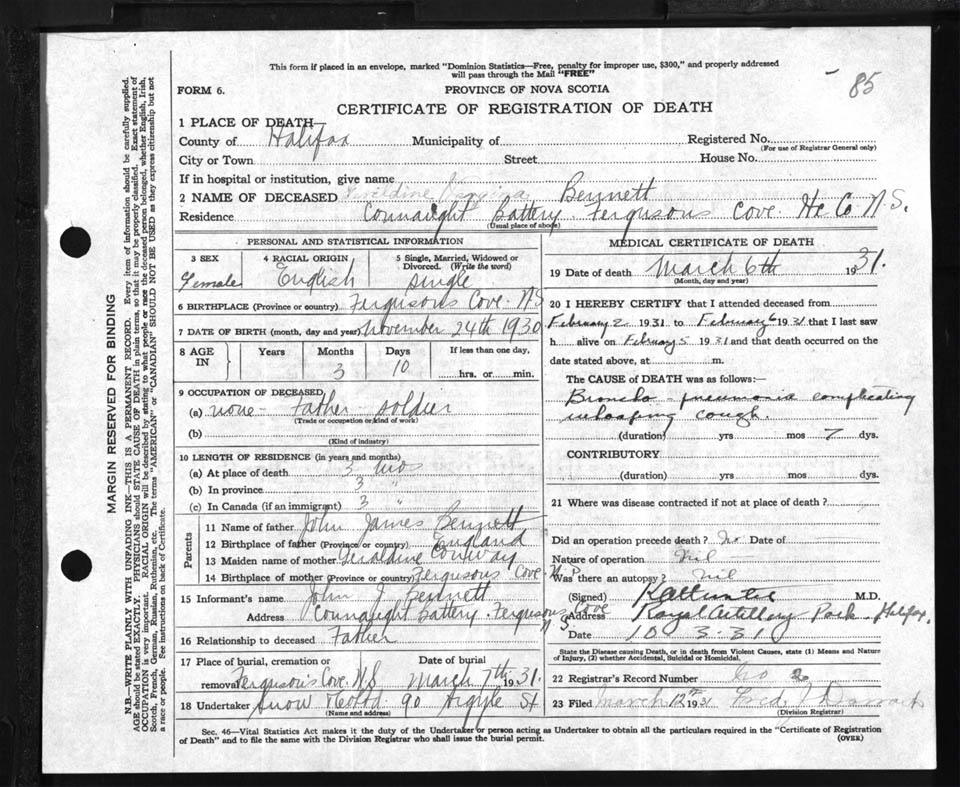 This form if placed in an envelope, marked "Dominion Statistics—Free, penalty for improper use, $300," and properly addressed
will pass through the Mail "FREE"
85
FORM 6.
PROVINCE OF NOVA SCOTIA
CERTIFICATE OF REGISTRATION OF DEATH
1 PLACE OF DEATH—
County of Halifax Municipality of Registered No.
(For use of Registrar General only)
City or Town Street House No.
If in hospital or institution, give name
2 NAME OF DECEASED Geraldine Bennett
Residence Connaught Battery Fergusons Cove. Hx Co N.S.
(Usual place of abode)
PERSONAL AND STATISTICAL INFORMATION
3 SEX 4 RACIAL ORIGIN 5 Single, Married, Widowed or
Divorced. (Write the word)
Female English Single
6 BIRTHPLACE (Province or country) Fergusons Cove. N.S
7 DATE OF BIRTH (month, day and year) November 24th 1930
8 AGE IN Years Months Days If less than one day,
3 10 hrs. or min.
9 OCCUPATION OF DECEASED
(a) none - father - soldier
(Trade or occupation or kind of work)
(b)
(Kind of industry)
10 LENGTH OF RESIDENCE (in years and months)
(a) At place of death 3 mos
(b) In province 3 "
(c) In Canada (if an immigrant) 3 "
Parents
11 Name of father John James Bennett
12 Birthplace of father (Province or country) England
13 Maiden name of mother Geraldine Conway
14 Birthplace of mother (Province or country) Fergusons Cove N.S
15 Informant's name John J. Bennett
Address Connaught Battery. Fergusons Cove
N S
16 Relationship to deceased Father
17 Place of burial, cremation or Date of burial
removal Ferguson's Cove. N.S March 7th 1931.
18 Undertaker Snow 90 Argyle St
(Name and address)
MEDICAL CERTIFICATE OF DEATH
19 Date of death March 6th 1931.
(Month, day and year)
20 I HEREBY CERTIFY that I attended deceased from
February 2 1931 to February 6 1931 that I last saw
h alive on February 5 1931 and that death occurred on the
date stated above, at m.
The CAUSE of DEATH was as follows:—
Broncho - pneumonia complicating
whooping cough.
(duration) yrs mos 7 dys.
CONTRIBUTORY
(duration) yrs mos dys.
21 Where was disease contracted if not at place of death?
Did an operation precede death? No Date of
Nature of operation Nil
Was there an autopsy? nil
(Signed) M.D.
Address Royal Artillery Park. Halifax
Date 10 3.31
State the Disease causing Death, or in death from Violent Causes, state (1) Means and Nature
of Injury, (2) whether Accidental, Suicidal or Homicidal.
22 Registrar's Record Number No 2
23 Filed March 12th 1931 Fred
(Division Registrar)
Sec. 46—Vital Statistics Act makes it the duty of the Undertaker or person acting as Undertaker to obtain all the particulars required in the "Certificate of Registration
of Death" and to file the same with the Division Registrar who shall issue the burial permit.
(OVER)
MARGIN RESERVED FOR BINDING
N.B.—WRITE PLAINLY WITH UNFADING INK—THIS IS A PERMANENT RECORD. Every item of information should be carefully supplied.
AGE should be stated EXACTLY. PHYSICIANS should STATE CAUSE OF DEATH in plain terms, so that it may be properly classified. Exact statement of
OCCUPATION is very important. RACIAL ORIGIN will be described by stating to what people or race the deceased person belonged, whether English, Irish,
Scotch, French, German, Russian, Ruthenian, etc. The terms "AMERICAN" or "CANADIAN" SHOULD NOT BE USED as they express citizenship but not
a race or people. See instructions on back of Certificate.